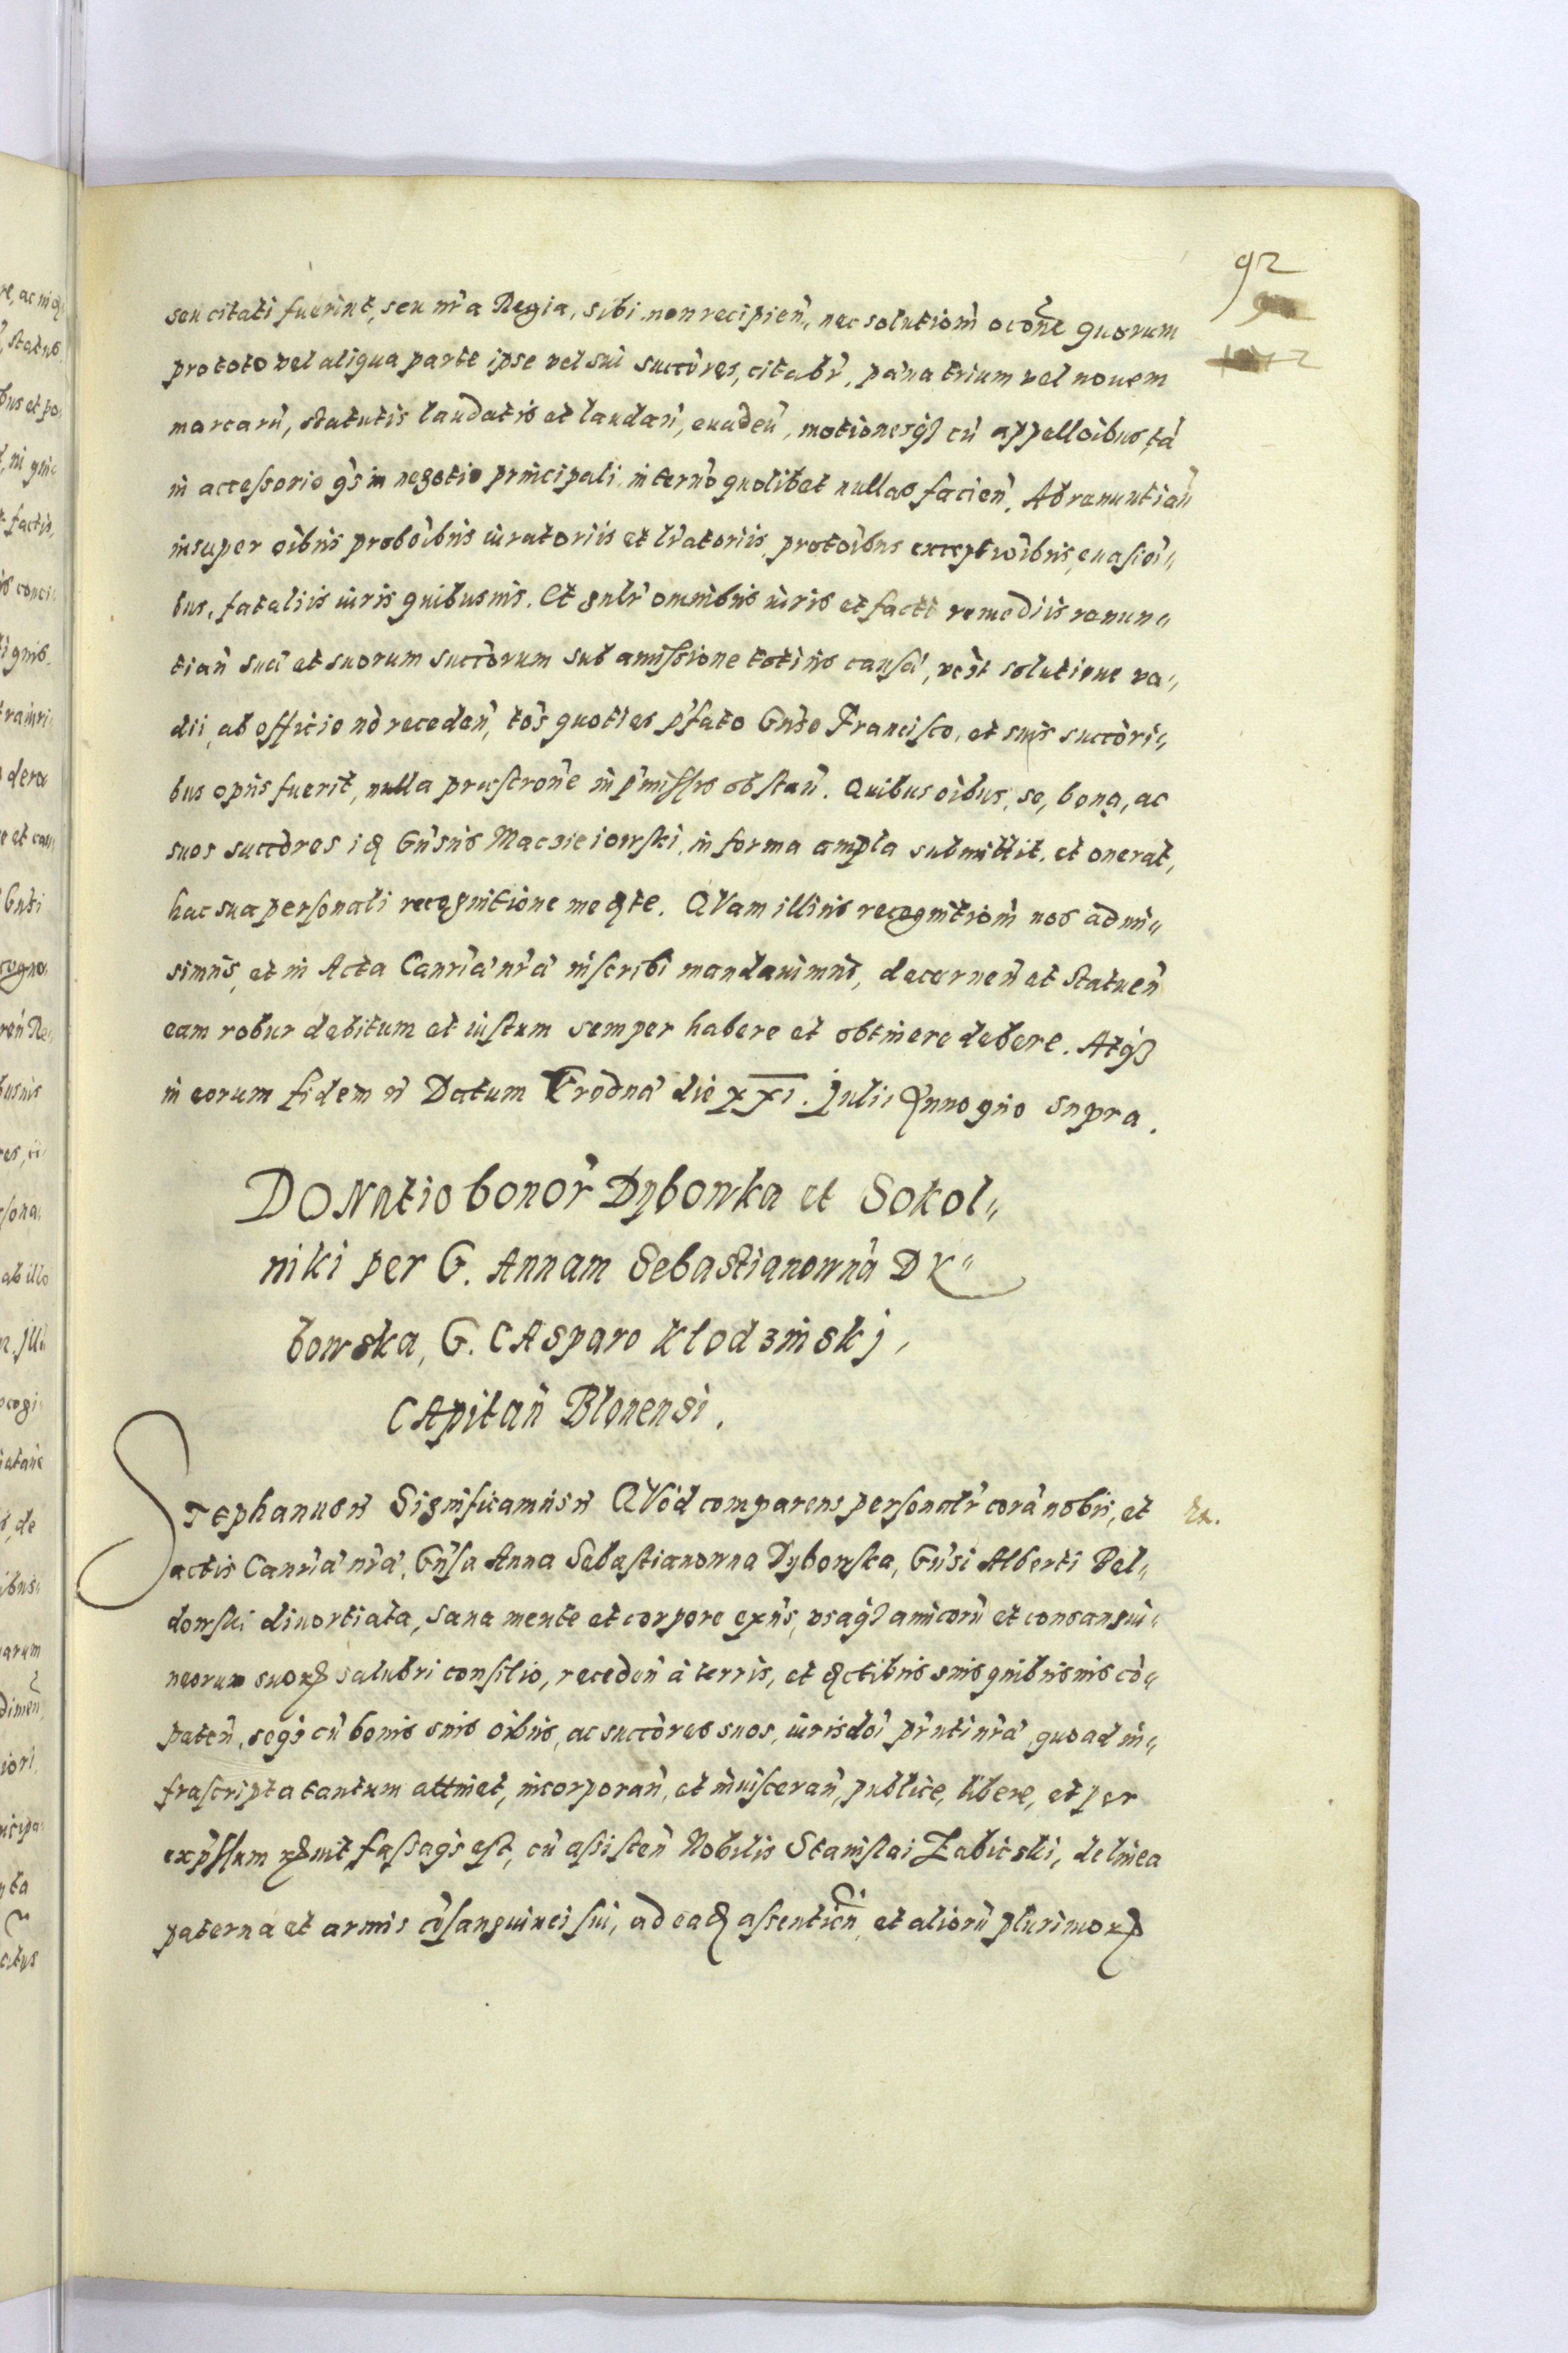 92
seu citati fuerint, seu nr̃a Regia, sibi non recipien̄, nec solutiom̄ occõne quorum
pro toto vel aliqua parte ipse vel sui succõres, citabr̄, pæna trium vel novem
marcarū, statutis laudatis et laudan̄, euaden̄, motionesq3 cū appellõibus, tā
in accessorio q̃s in negotio principali in termõ quolibet nullas facien̄. Abrenuntian̄
insuper oĩbus probõibus iuratoriis et lr̃atoriis, protõibus exceptiõibus, euasiõi„
bus, fataliis iuris quibusuis. Et gnlr̃ omnibus iuris et facti remediis renun„
tian̄ suā et suorum succõrum sub amissione totius causæ, vẽst solutione va„
dii, ab officio nō receden̄, tõs quoties p̃fato Gnso Francisco, et suis succõri„
bus opus fuerit, nulla præscrõne in p̃missis obstan̄. Quibus oĩbus, se, bona, ac
suos succõres id Gnsus Maczieiowski, in forma ampla submittit, et onerat,
hac sua personali recognitione medite. QVam illius recognitiom̄ nos admi„
simus, et in Acta Canr̃iæ nr̃æ inscribi mandauimus, decernen̄ et statuen̄
eam robur debitum et iustum semper habere et obtinere debere. Atq3
in eorum fidem ñ Datum Grodnæ die xxi. Julii Anno quo supra.
DONatio bonor̃ Dybowka et Sokol„
niki per G. Annam Sebastianownā Dy„
bowska, G. CAsparo Klodzinskj,
CApitan̄ Blonensi.
STephanus ñ Significamus ñ QVod comparens personalr̃ corā nobis, et
Ex.
actis Canr̃iæ nr̃æ, Gnsa Anna Sebastianowna Dybowska, Gnsi Alberti Bel„
dowski diuortiata, sana mente et corpore exñs, vsaq3 amicorū et consangui„
neorum suorꝝ salubri consilio, receden̄ à terris, et dictibus suis quibusuis cõ„
peten̄, seq3 cū bonis suis oĩbus, ac succõres suos, iurisdõi pr̃nti nr̃æ, quoad in„
frascripta tantum attinet, incorporan̄, et inuisceran̄, publice, libere, et per
exp̃ssum recognouit fassaq3 est, cū assisten̄ Nobilis Stanislai Zabicski, de linea
paterna et armis cōsanguinei sui, ad ead assentien̄, et aliorū plurimorꝝ